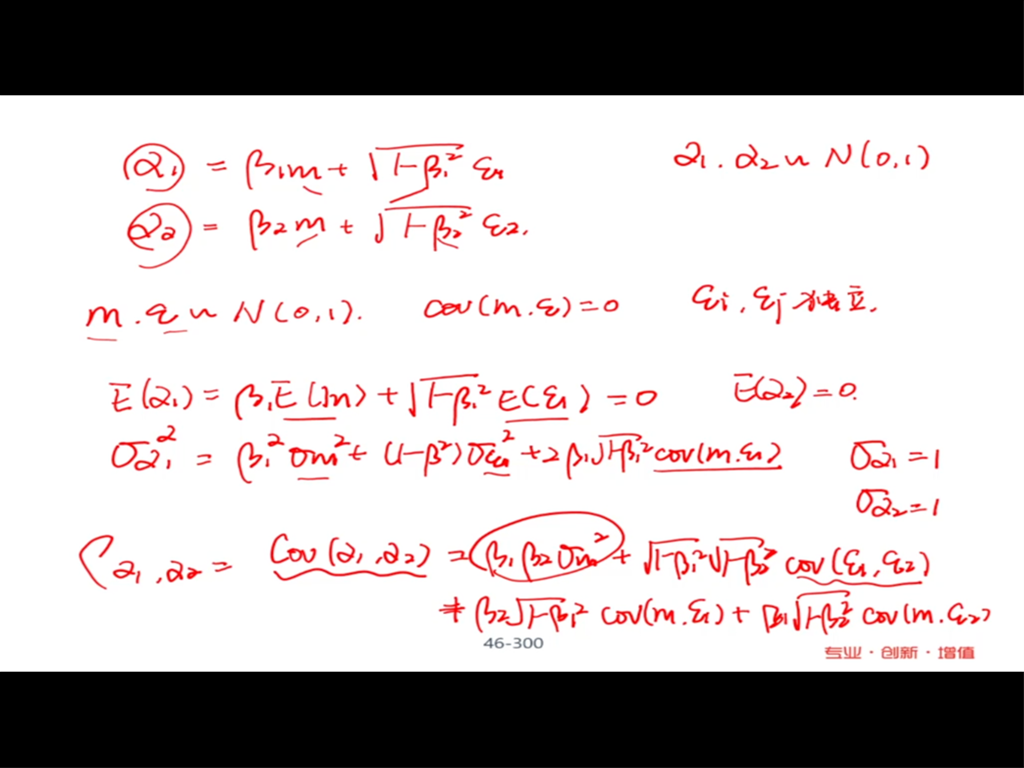 α₁ = β₁m + √(1-β₁²) ε₁   α₁.α₂ ~ N(0,1)
α₂ = β₂m + √(1-β₂²) ε₂.
m.ε ~ N(0,1).   cov(m.ε)=0   εi, εj 独立.
E(α₁) = β₁E(m) + √(1-β₁²) E(ε₁) = 0   E(α₂)=0.
σα₁² = β₁²σm² + (1-β²)σε₁² + 2β₁√(1-β₁²) cov(m.ε₁)   σα₁=1
σα₂=1
ρα₁,α₂ = Cov(α₁,α₂) = β₁β₂σm² + √(1-β₁²)√(1-β₂²) cov(ε₁,ε₂)
+ β₂√(1-β₁²) cov(m.ε₁) + β₁√(1-β₂²) cov(m.ε₂)
46-300
专业·创新·增值